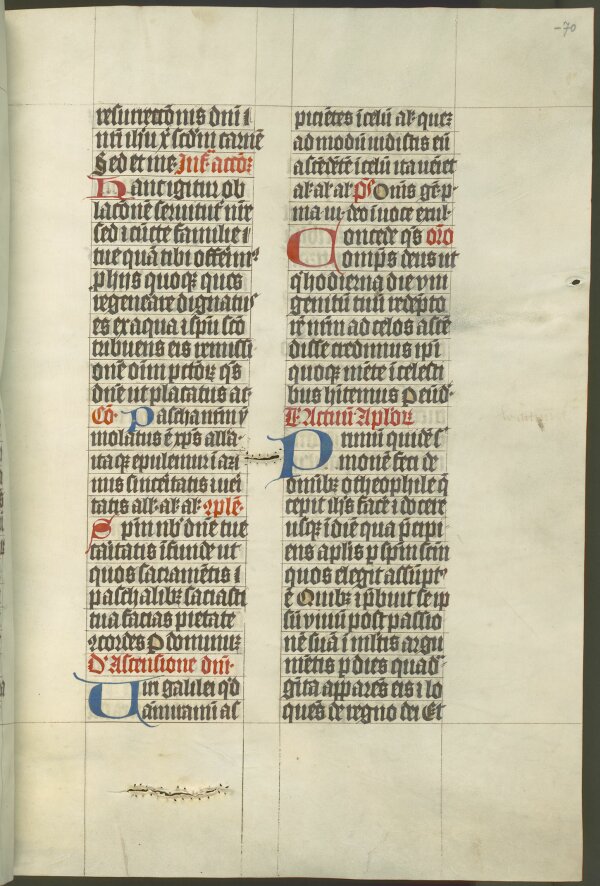 -70
resurrectõnis dñi i
nr̃i ihũ x̃ scd̃m carnẽ
Sed et me Inf̃ acc̃oꝫ
Hanc igitur ob
lac̃onẽ seruitut̃ nr̃e
sed ⁊ cũcte familie
tue quã tibi offerim⁹
p hijs quoqꝫ ques
regenerare dignatus
es ex aqua ⁊ spũ scõ
tribuens eis remissi
onẽ oĩm pctõrũ qs
dñe ut placatus ac
Cõ. Pascha nrm̃ ĩ
molatus ẽ xp̃s alla
itaqꝫ epulemur ĩ azi
mis sinceritatis ⁊ ueri
tatis all· al· al· ꝯple
Spm̃ nb̃ dñe tue
caritatis ĩfunde ut
quos sacramẽtis
paschalibꝫ saciasti
tua facias pietate
ꝯcordes P dominũ
D' Ascensione dñi·
Uiri galilei qd̃
ammirami as
picĩetes ĩ celũ al· quẽ
admodũ uidistis eũ
ascẽdẽtẽ ĩ celũ ita ueniet
al· al· al· ps̃ Oms̃ gẽ· p·
ma iu· deo ĩ uoce exul·
Concede qs̃ oro
omp̃s deus ut
q̃ hodierna die vni
genitũ tuũ redẽpto
rẽ nrm̃ ad celos ascẽ
disse credimus ipi
quoqꝫ mẽte ĩ celesti
bus hitemus P eũd·
L' Actuũ Aplorꝫ
Primũ quidẽ s̃
monẽ feci de
omibꝫ o theophile q̃
cepit ihs̃ facẽ ⁊ docere
usqꝫ ĩ diẽ qua p̃cipi
ens aplis p spm̃ scm̃
quos elegit assũpt⁹
ẽ Quibꝫ ⁊ p̃buit seip
sũ viuũ post passio
nẽ suã ĩ ml̃tis argu
mẽtis p dies quad
gĩta apparẽs eis ⁊ lo
quẽs de regno dei Et